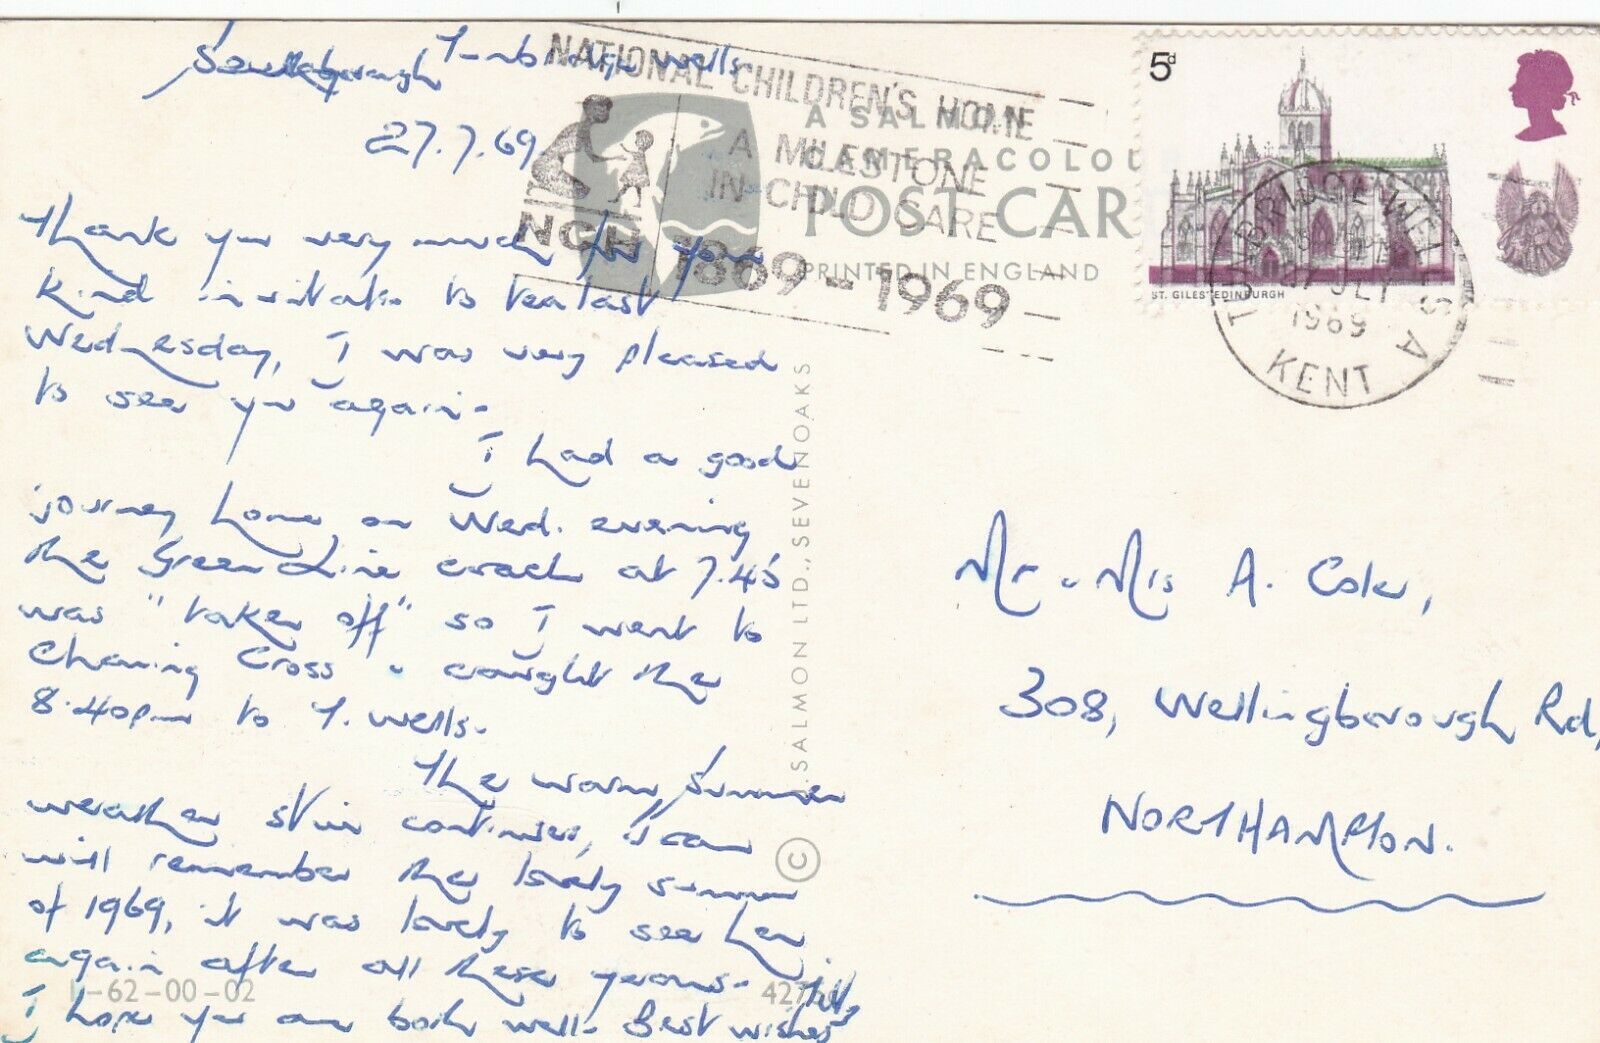 Southborough Tunbridge Wells.
27.7.69.
Thank you very much for your
kind invitation to tea last
Wednesday, I was very pleased
to see you again.
I had a good
journey home on Wed. evening
the Green Line coach at 7.45
was "taken off" so I went to
Charing Cross & caught the
8.40pm to T. Wells.
The warm, summer
weather still continues, I can
will remember the lovely summer
of 1969, it was lovely to see Len
again after all these years.
I hope you are both well. Best wishes
NATIONAL CHILDREN'S HOME
A MILESTONE
IN CHILD CARE
NCH 1869-1969
A SALMON
CAMERACOLOUR
POST CARD
PRINTED IN ENGLAND
© J. SALMON LTD., SEVENOAKS
1-62-00-02
5d
ST. GILES' EDINBURGH
TUNBRIDGE WELLS A
27 JLY
1969
KENT
Mr & Mrs A. Cole,
308, Wellingborough Rd,
NORTHAMPTON.